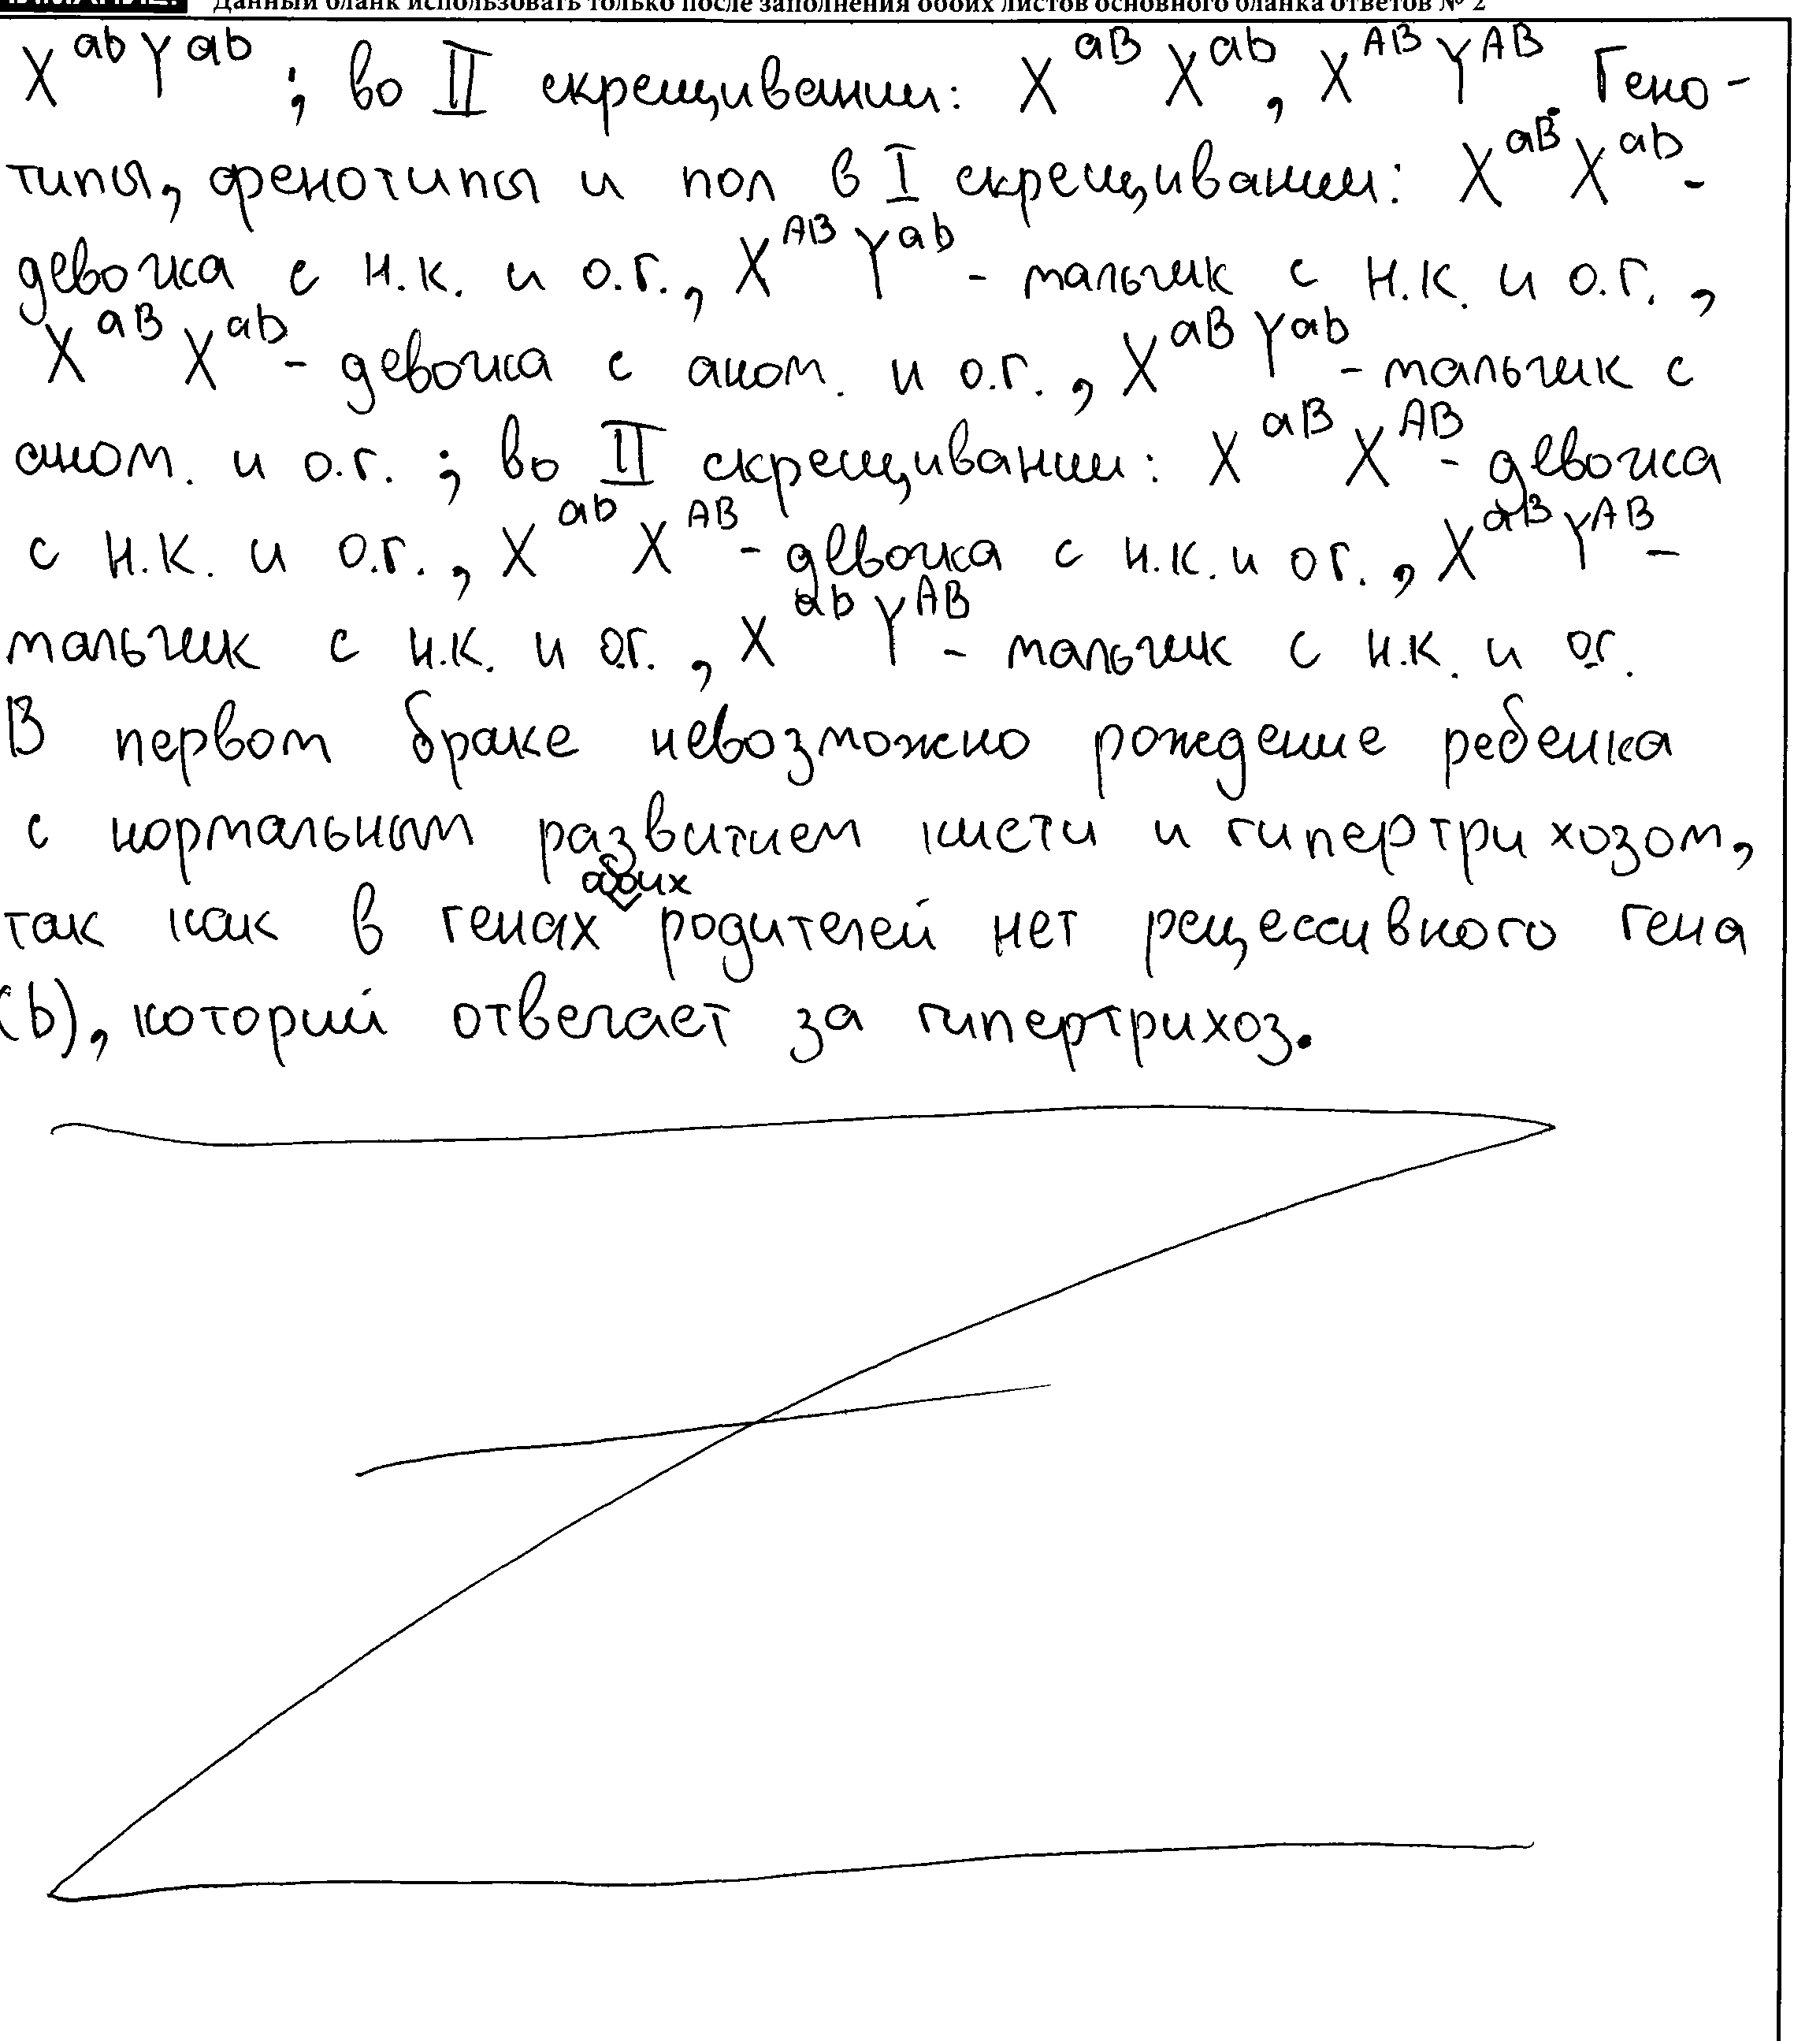 Данный бланк использовать только после заполнения обоих листов основного бланка ответов № 2
X^ab Y^ab ; во II скрещивании: X^aB X^ab, X^AB Y^AB. Гено-
типы, фенотипы и пол в I скрещивании: X^aB X^ab -
девочка с н.к. и о.г., X^AB Y^ab - мальчик с н.к. и о.г.,
X^aB X^ab - девочка с аном. и о.г., X^aB Y^ab - мальчик с
аном. и о.г. ; во II скрещивании: X^aB X^AB - девочка
с н.к. и о.г., X^ab X^AB - девочка с н.к. и о г., X^aB Y^AB -
мальчик с н.к. и о.г., X^ab Y^AB - мальчик с н.к. и о.г.
В первом браке невозможно рождение ребенка
с нормальным развитием кисти и гипертрихозом,
так как в генах обоих родителей нет рецессивного гена
(b), который отвечает за гипертрихоз.